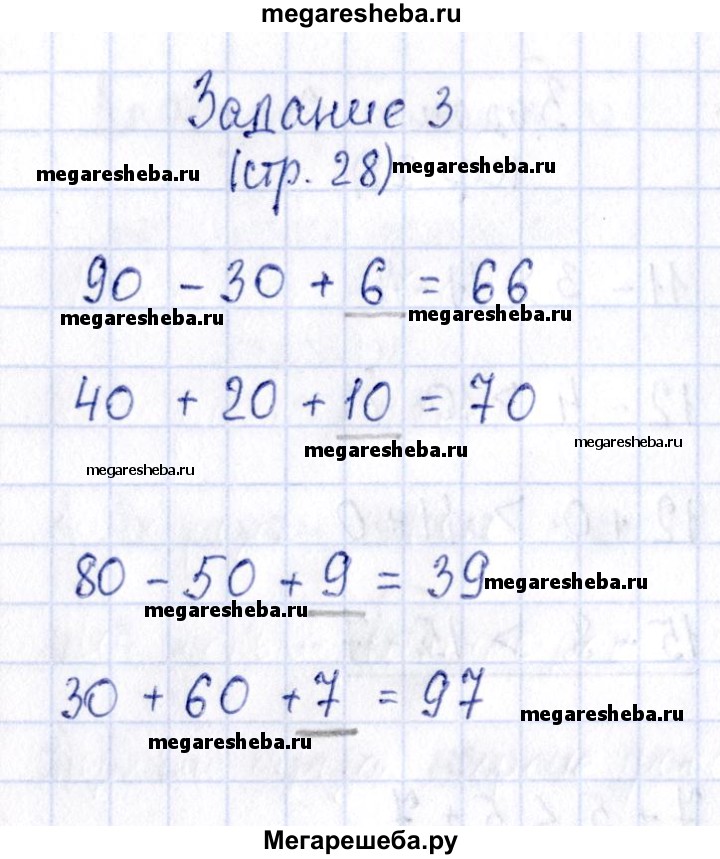 megaresheba.ru
Задание 3
megaresheba.ru (стр. 28) megaresheba.ru
90 - 30 + 6 = 66
megaresheba.ru megaresheba.ru
40 + 20 + 10 = 70
megaresheba.ru megaresheba.ru
megaresheba.ru
80 - 50 + 9 = 39 megaresheba.ru
megaresheba.ru
30 + 60 + 7 = 97
megaresheba.ru megaresheba.ru
Мегарешеба.ру